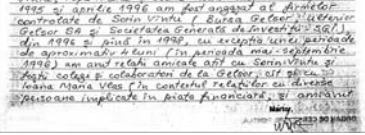 1995 și aprilie 1996 am fost angajat al firmelor
controlate de Sorin Vîntu (Bursa Gelsor, ulterior
Gelsor SA și Societatea Generală de Investiții - SGI),
din 1996 și pînă în 1998, cu excepția unei perioade
de aproximativ 4 luni (în perioada mai-septembrie
1996) am avut relații amicale atît cu Sorin Vîntu și
foști colegi și colaboratori de la Gelsor, cît și cu
Ioana Maria Vlas (în contextul relațiilor cu diverse
persoane implicate în piața financiară, și am avut
Martor,